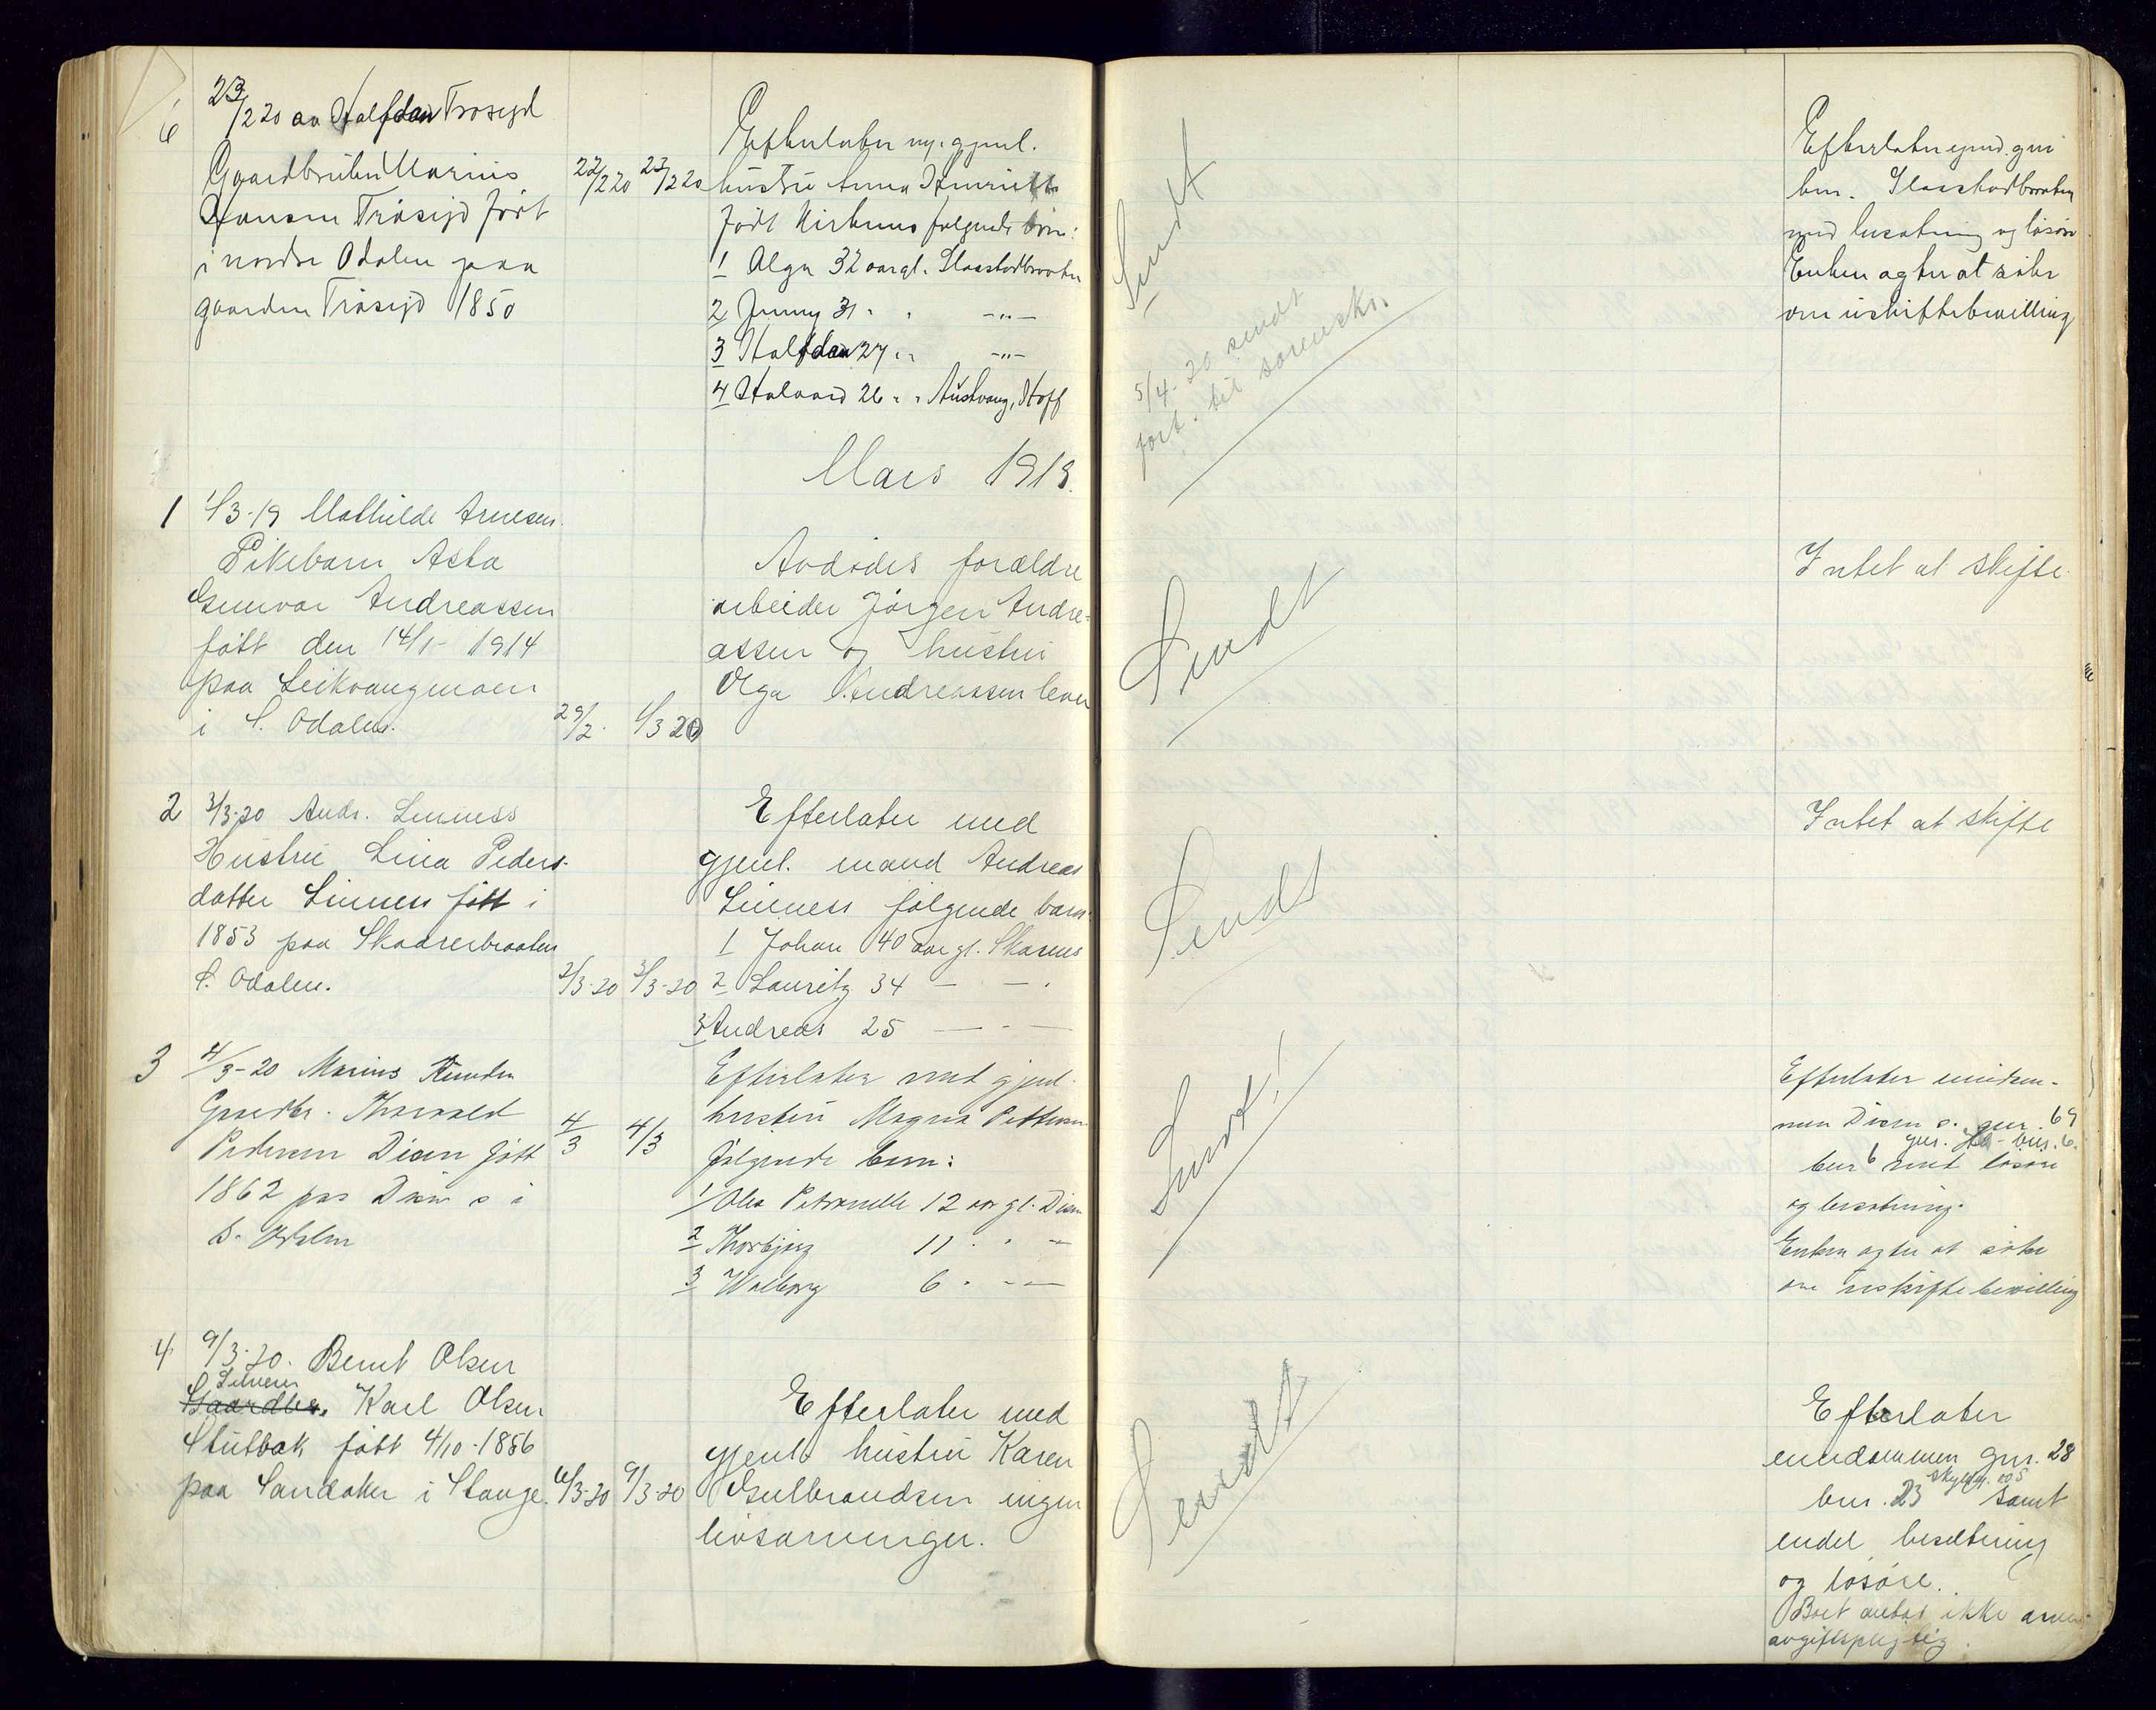 6
23/2 20 av Halfdan Trosejd
Gaardbruker Marius
Hansen Trøsejd født
i nordre Odalen paa
gaarden Trøsejd 1850
22/2 20 23/2 20
Efterlater gjenl.
hustru Anna Henriette
født Kirkemo følgende børn:
1 Olga 32 aar gl. Slaastadbraaten
2 Jenny 31 " " -"-
3 Halfdan 27 " " -"-
4 Halvard 26 " " Austvang, Hoff
Sendt
5/4-20 sendt
fort. til sorenskr.
Efterlater eiend. gnr
bnr. Slaastadbraaten
med besætning og løsøre
Enken agter at søke
om uskiftebevilling
Mars 1919.
1
1/3-19 Mathilde Arnesen.
Pikebarn Asta
Gunvor Andreassen
født den 14/1- 1914
paa Leikvangmoen
i S. Odalen.
29/2. 1/3 20
Avdødes forældre
arbeider Jørgen Andre-
assen og hustru
Olga Andreassen lever
Sendt
Intet at skifte.
2
3/3-20 Andr. Linness
Hustru Lina Peders-
datter Linness født i
1853 paa Skaarerbraaten
S. Odalen.
2/3-20 3/3-20
Efterlater med
gjenl. mand Andreas
Linness følgende barn:
1 Johan 40 aar gl. Skarnes
2 Lauritz 34 - - .
3 Andreas 25 - - -
Sendt
Intet at skifte
3
4/3-20 Marius
Gaardbr. Thorvald
Pedersen Disen født
1862 paa Disen s i
S. Odalen
4/3 4/3
Efterlater med gjenl.
hustru Magna Pettersen
følgende barn:
1 Olea Petronelle 12 aar gl. Disen
2 Thorbjørg 11 " " -
3 Walborg 6 " - -
Sendt!
Efterlater eiendom-
men Disen s. gnr. 69
gnr. bnr. 6.
bnr 6 med løsøre
og besætning.
Enken agter at søke
om uskiftebevilling
4
9/3-20. Bernt Olsen
Gaardbr. Karl Olsen
Slutbak født 4/10-1856
paa Sandaker i Stange.
6/3-20 9/3-20
Efterlater med
gjenl. hustru Karen
Gulbrandsen ingen
livsarvinger.
Sendt
Efterlater
eiendommen gnr. 28
bnr. 23 skyldm. 005 samt
endel besætning
og løsøre.
Boet antas ikke arve-
avgiftspligtig.